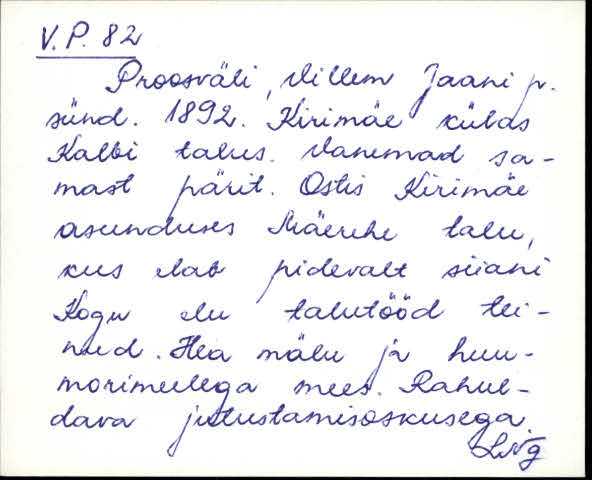 V.P. 82
Proosväli, Villem Jaani p.
sünd. 1892. Kirimäe külas
Kalbi talus. Vanemad sa-
mast pärit. Ostis Kirimäe
asunduses Mäerehe talu,
kus elab pidevalt siiani
Kogu elu talutööd tei-
nud. Hea mälu ja huu-
morimeelega mees. Rahul-
dava jutustamisoskusega.